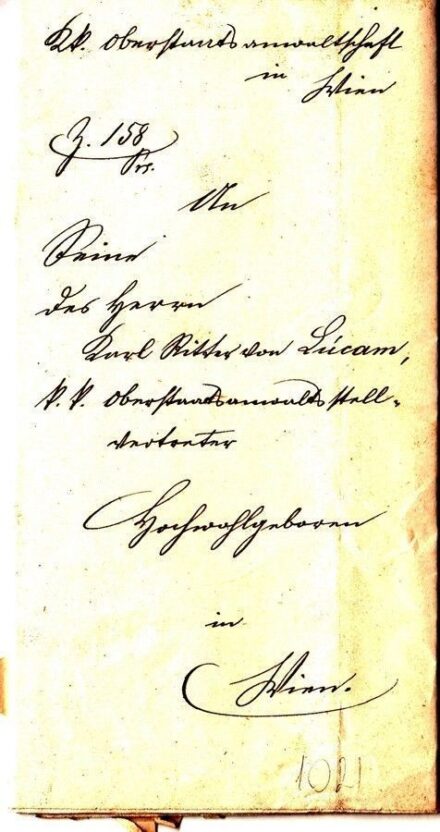 K.k. Oberstaatsanwaltschaft
in
Wien
Z. 158
Prs.
An
Seine
des Herrn
Karl Ritter von Lucam,
k. k. Oberstaatsanwaltsstell-
vertreter
Hochwohlgeboren
in
Wien.
1021